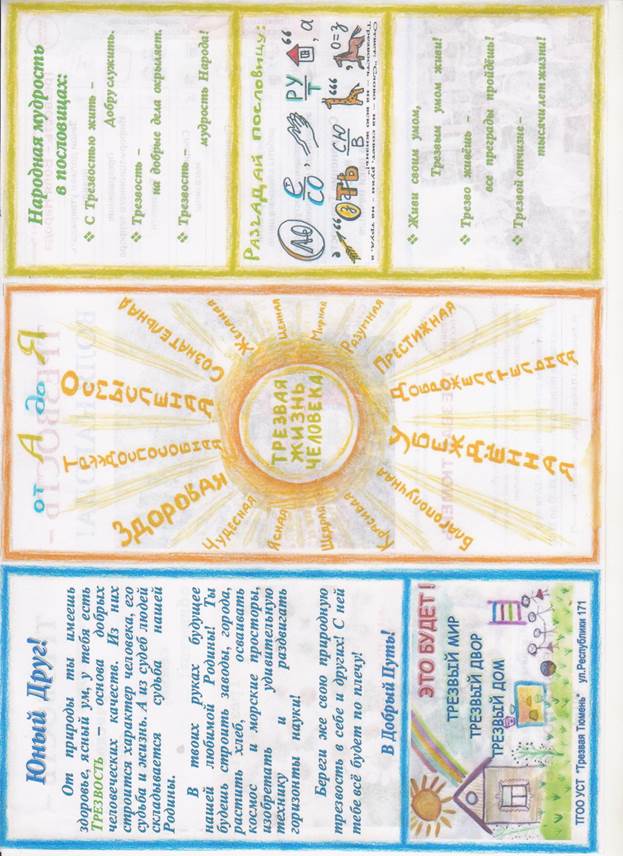 Юный Друг!
От природы ты имеешь
здоровье, ясный ум, у тебя есть
ТРЕЗВОСТЬ – основа добрых
человеческих качеств. Из них
строится характер человека, его
судьба и жизнь. А из судеб людей
складывается судьба нашей
Родины.
В твоих руках будущее
нашей любимой Родины! Ты
будешь строить заводы, города,
растить хлеб, осваивать
космос и морские просторы,
изобретать удивительную
технику и раздвигать
горизонты науки!
Береги же свою природную
трезвость в себе и других! С ней
тебе всё будет по плечу!
В Добрый Путь!
ЭТО БУДЕТ!
ТРЕЗВЫЙ МИР
ТРЕЗВЫЙ ДВОР
ТРЕЗВЫЙ ДОМ
ТГОО УСТ "Трезвая Тюмень" ул.Республики 171
от А до Я
ЗДОРОВАЯ
ОСМЫСЛЕННАЯ
СОЗНАТЕЛЬНАЯ
Чудесная
Ясная
Щедрая
Красивая
Благополучная
УБЕЖДЁННАЯ
ДОБРОЖЕЛАТЕЛЬНАЯ
ПРЕСТИЖНАЯ
Разумная
Мирная
Ценная
Желанная
ТРЕЗВАЯ
ЖИЗНЬ
ЧЕЛОВЕКА
Народная мудрость
в пословицах:
❖ С Трезвостью жить –
Добру служить.
❖ Трезвость –
на добрые дела окрыляет.
❖ Трезвость –
мудрость Народа!
РАЗГАДАЙ ПОСЛОВИЦУ:
❖ Живи своим умом,
Трезвым умом живи!
❖ Трезво живёшь –
все преграды пройдёшь!
❖ Трезвой отчизне –
тысячи лет жизни!